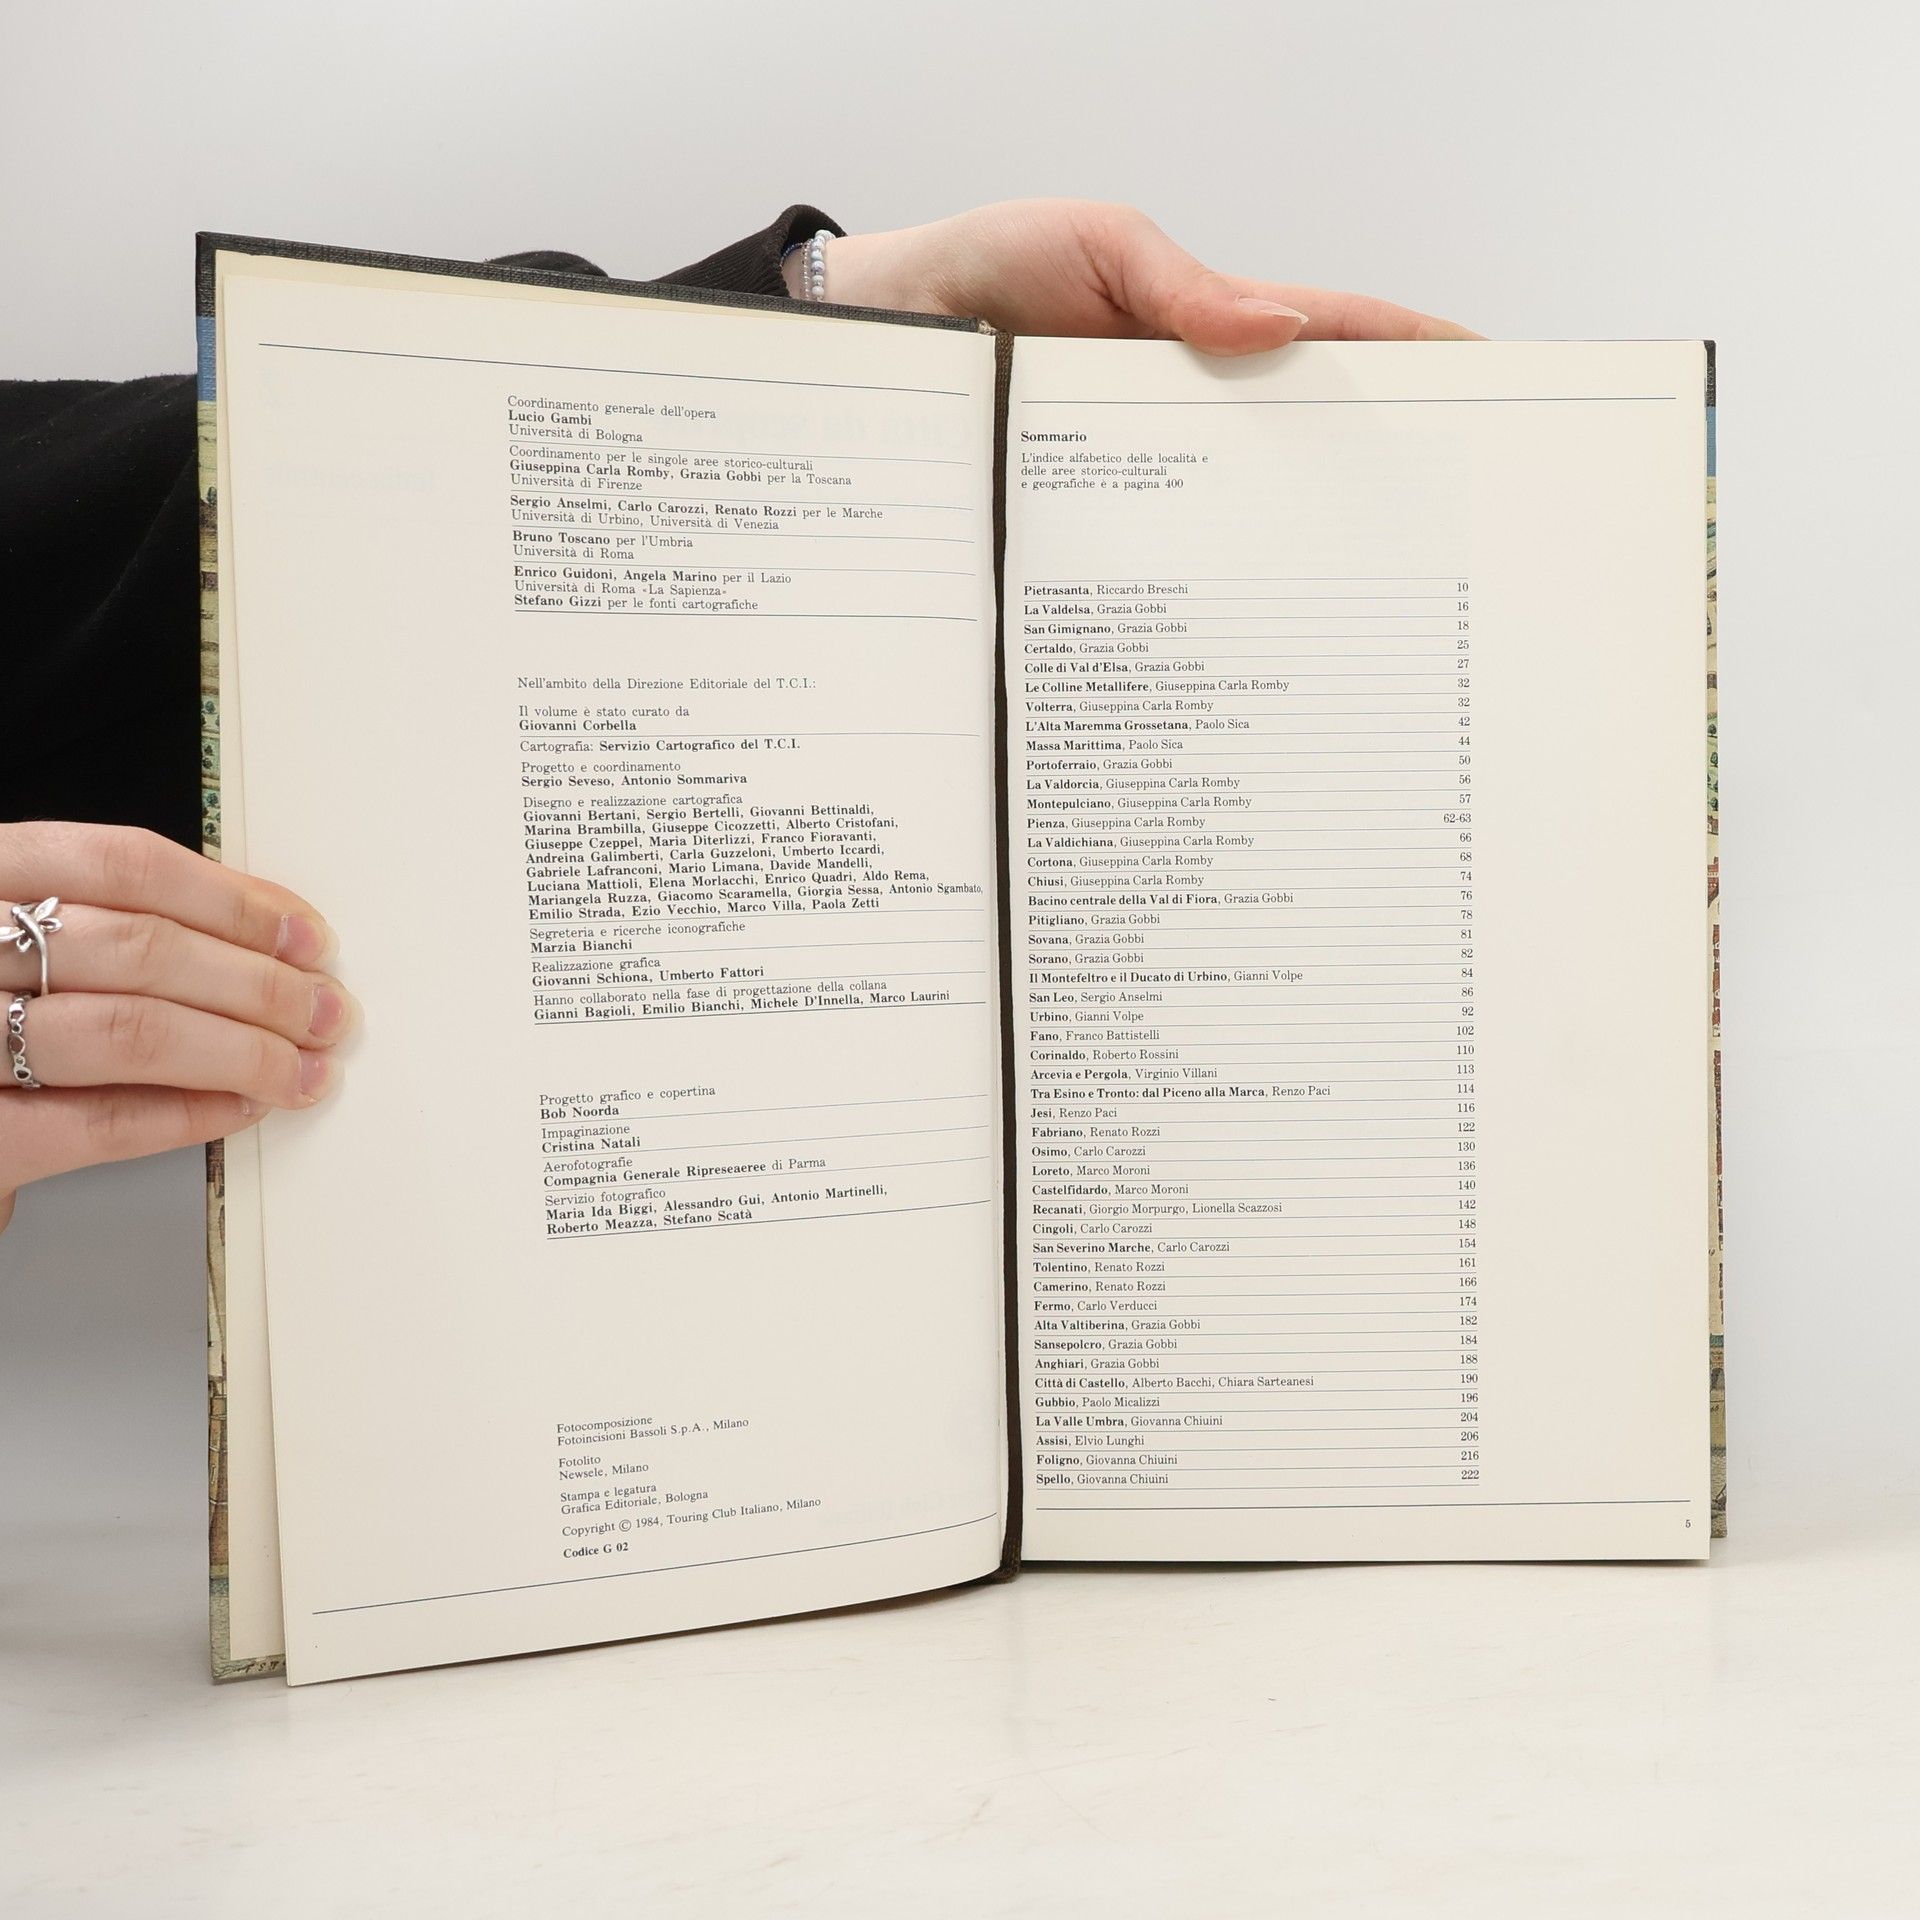 Coordinamento generale dell'opera
Lucio Gambi
Università di Bologna
Coordinamento per le singole aree storico-culturali
Giuseppina Carla Romby, Grazia Gobbi per la Toscana
Università di Firenze
Sergio Anselmi, Carlo Carozzi, Renato Rozzi per le Marche
Università di Urbino, Università di Venezia
Bruno Toscano per l'Umbria
Università di Roma
Enrico Guidoni, Angela Marino per il Lazio
Università di Roma «La Sapienza»
Stefano Gizzi per le fonti cartografiche
Nell'ambito della Direzione Editoriale del T.C.I.:
Il volume è stato curato da
Giovanni Corbella
Cartografia: Servizio Cartografico del T.C.I.
Progetto e coordinamento
Sergio Seveso, Antonio Sommariva
Disegno e realizzazione cartografica
Giovanni Bertani, Sergio Bertelli, Giovanni Bettinaldi,
Marina Brambilla, Giuseppe Cicozzetti, Alberto Cristofani,
Giuseppe Czeppel, Maria Diterlizzi, Franco Fioravanti,
Andreina Galimberti, Carla Guzzeloni, Umberto Iccardi,
Gabriele Lafranconi, Mario Limana, Davide Mandelli,
Luciana Mattioli, Elena Morlacchi, Enrico Quadri, Aldo Rema,
Mariangela Ruzza, Giacomo Scaramella, Giorgia Sessa, Antonio Sgambato,
Emilio Strada, Ezio Vecchio, Marco Villa, Paola Zetti
Segreteria e ricerche iconografiche
Marzia Bianchi
Realizzazione grafica
Giovanni Schiona, Umberto Fattori
Hanno collaborato nella fase di progettazione della collana
Gianni Bagioli, Emilio Bianchi, Michele D'Innella, Marco Laurini
Progetto grafico e copertina
Bob Noorda
Impaginazione
Cristina Natali
Aerofotografie
Compagnia Generale Ripreseaeree di Parma
Servizio fotografico
Maria Ida Biggi, Alessandro Gui, Antonio Martinelli,
Roberto Meazza, Stefano Scatà
Fotocomposizione
Fotoincisioni Bassoli S.p.A., Milano
Fotolito
Newsele, Milano
Stampa e legatura
Grafica Editoriale, Bologna
Copyright © 1984, Touring Club Italiano, Milano
Codice G 02
Sommario
L'indice alfabetico delle località e
delle aree storico-culturali
e geografiche è a pagina 400
Pietrasanta, Riccardo Breschi 10
La Valdelsa, Grazia Gobbi 16
San Gimignano, Grazia Gobbi 18
Certaldo, Grazia Gobbi 25
Colle di Val d'Elsa, Grazia Gobbi 27
Le Colline Metallifere, Giuseppina Carla Romby 32
Volterra, Giuseppina Carla Romby 32
L'Alta Maremma Grossetana, Paolo Sica 42
Massa Marittima, Paolo Sica 44
Portoferraio, Grazia Gobbi 50
La Valdorcia, Giuseppina Carla Romby 56
Montepulciano, Giuseppina Carla Romby 57
Pienza, Giuseppina Carla Romby 62-63
La Valdichiana, Giuseppina Carla Romby 66
Cortona, Giuseppina Carla Romby 68
Chiusi, Giuseppina Carla Romby 74
Bacino centrale della Val di Fiora, Grazia Gobbi 76
Pitigliano, Grazia Gobbi 78
Sovana, Grazia Gobbi 81
Sorano, Grazia Gobbi 82
Il Montefeltro e il Ducato di Urbino, Gianni Volpe 84
San Leo, Sergio Anselmi 86
Urbino, Gianni Volpe 92
Fano, Franco Battistelli 102
Corinaldo, Roberto Rossini 110
Arcevia e Pergola, Virginio Villani 113
Tra Esino e Tronto: dal Piceno alla Marca, Renzo Paci 114
Jesi, Renzo Paci 116
Fabriano, Renato Rozzi 122
Osimo, Carlo Carozzi 130
Loreto, Marco Moroni 136
Castelfidardo, Marco Moroni 140
Recanati, Giorgio Morpurgo, Lionella Scazzosi 142
Cingoli, Carlo Carozzi 148
San Severino Marche, Carlo Carozzi 154
Tolentino, Renato Rozzi 161
Camerino, Renato Rozzi 166
Fermo, Carlo Verducci 174
Alta Valtiberina, Grazia Gobbi 182
Sansepolcro, Grazia Gobbi 184
Anghiari, Grazia Gobbi 188
Città di Castello, Alberto Bacchi, Chiara Sarteanesi 190
Gubbio, Paolo Micalizzi 196
La Valle Umbra, Giovanna Chiuini 204
Assisi, Elvio Lunghi 206
Foligno, Giovanna Chiuini 216
Spello, Giovanna Chiuini 222
5